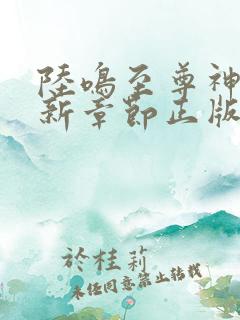 陸鳴至尊神
新章節正版
於桂莉
未经同意禁止转载